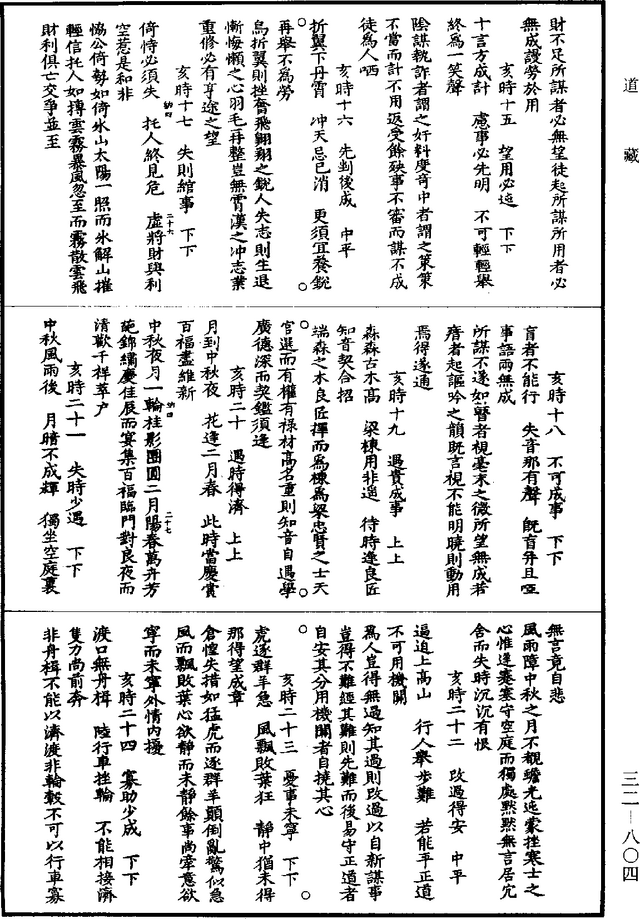 道藏
財不足所謀者必無望徒起所謀所用者必
無成謾勞於用
亥時十五　望用必遂　下下
十言方成計　慮事必先明　不可輕輕舉
終為一笑聲
陰謀執詐者謂之奸料度奇中者謂之策策
不當而計不用返受餘殃事不審而謀不成
徒為人哂
亥時十六　先剉後成　中平
折翼下丹霄　冲天忌已消　更須宜養銳
再舉不為勞
烏折翼則挫奮飛翺翔之銳人失志則生退
慚悔懶之心羽毛再整豈無霄漢之冲志業
重修必有亨達之望
亥時十七　失則綰事　下下
倚恃必須失　托人終見危　虛將財與利
空惹是和非
恊公倚勢如倚氷山太陽一照而氷解山摧
輕信托人如摶雲霧暴風忽至而霧散雲飛
財利俱亡交爭並至
亥時十八　不可成事　下下
盲者不能行　失音那有聲　旣盲弁且啞
事語兩無成
所謀不遂如瞽者視毫末之微所望無成若
瘖者起謳吟之韻旣言視不能明曉則動用
焉得遂通
亥時十九　遇貴成事　上上
森森古木高　梁棟用非遥　待時逢良匠
知音契合招
端森之木良匠擇而為棟為梁忠賢之士天
官選而有權有祿材高名重則知音自遇學
廣德深而契鑑須逢
亥時二十　遇時得濟　上上
月到中秋夜　花逢二月春　此時當慶賞
百福盡維新
中秋夜月一輪桂影團圓二月陽春萬卉芳
葩錦繡慶佳辰而宴集百福臨門對良夜而
清歡千祥萃户
亥時二十一　失時少遇　下下
中秋風雨後　月暗不成輝　獨坐空庭裏
無言竟自悲
風雨障中秋之月不覩蟾光迍蒙挫寒士之
心惟逢蹇塞守空庭而獨處黙黙無言居宂
舍而失時沉沉有恨
亥時二十二　改過得安　中平
逼道上高山　行人舉步難　若能平正道
不可用機關
為人豈得無過知其過則改過以自新謀事
豈得不難經其難則先難而後易守正道者
自安其分用機關者自撓其心
亥時二十三　憂事未寧　下下
虎逐群羊急　風飄敗葉狂　靜中猶未得
那得望成章
倉惶失措如猛虎而逐群羊顛倒亂驚似急
風而飄敗葉心欲靜而未靜餘事尚牽意欲
寧而未寧外情内擾
亥時二十四　寡助少成　下下
渡口無舟楫　陸行車挫輪　不能相接濟
隻力尚前奔
非舟楫不能以濟渡非輪轂不可以行車寡
三二—八〇四